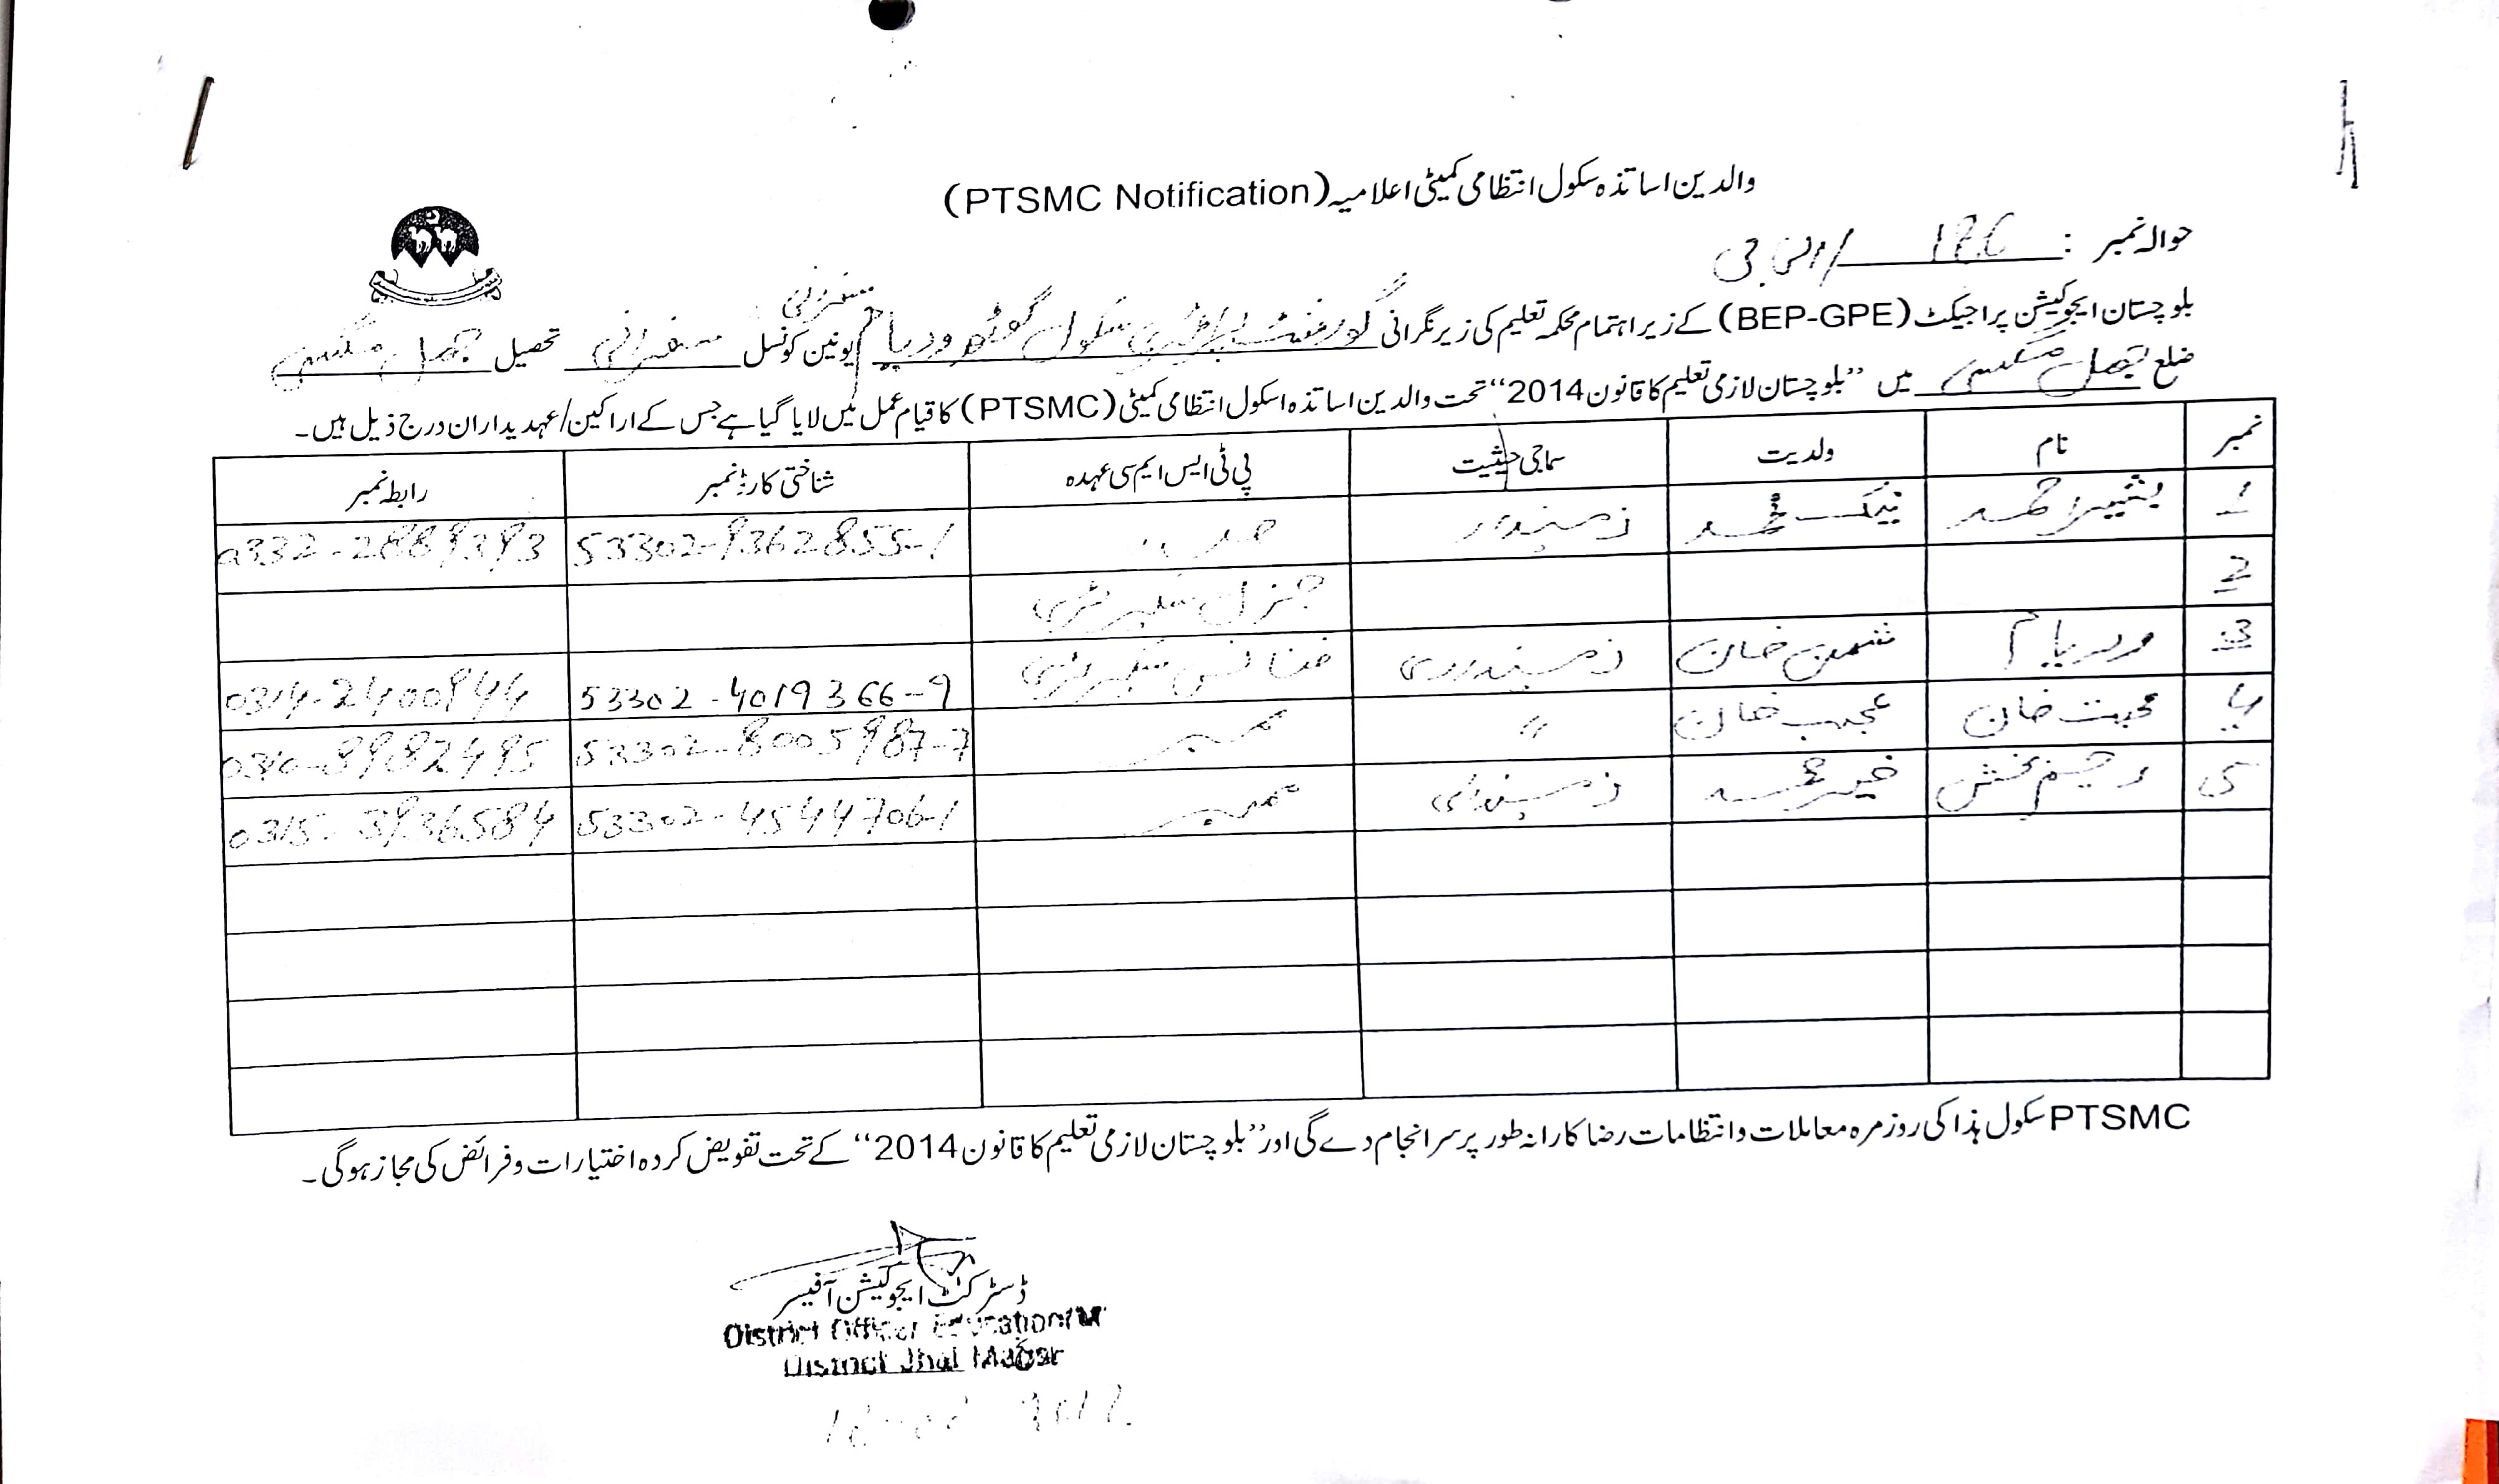 والدین اساتذہ سکول انتظامی کمیٹی اعلامیہ (PTSMC Notification)
حوالہ نمبر :
بلوچستان ایجوکیشن پراجیکٹ (BEP-GPE) کے زیر اہتمام محکمہ تعلیم کی زیر نگرانی گورنمنٹ پرائمری سکول گوٹھ وریام یونین کونسل تحصیل جھل مگسی
ضلع جھل مگسی میں "بلوچستان لازمی تعلیم کا قانون 2014" تحت والدین اساتذہ اسکول انتظامی کمیٹی (PTSMC) کا قیام عمل میں لایا گیا ہے جس کے اراکین/عہدیداران درج ذیل ہیں۔
نمبر نام ولدیت سماجی حیثیت پی ٹی ایس ایم سی عہدہ شناختی کارڈ نمبر رابطہ نمبر
1 بشیر احمد نیک محمد زمیندار صدر 53302-9362855-1
2 جنرل سیکریٹری
3 وریام شمن خان زمینداری فنانس سیکریٹری 53302-4019366-9 0314-2400944
4 محبت خان عجب خان " ممبر 53302-8005987-7
5 رحیم بخش خیر محمد زمینداری ممبر 53302-4544706-1 0315-3936584
PTSMC سکول ہذا کی روزمرہ معاملات و انتظامات رضا کارانہ طور پر سرانجام دے گی اور "بلوچستان لازمی تعلیم کا قانون 2014" کے تحت تفویض کردہ اختیارات و فرائض کی مجاز ہوگی۔
ڈسٹرکٹ ایجوکیشن آفیسر
District Officer Education
District Jhal Magsi